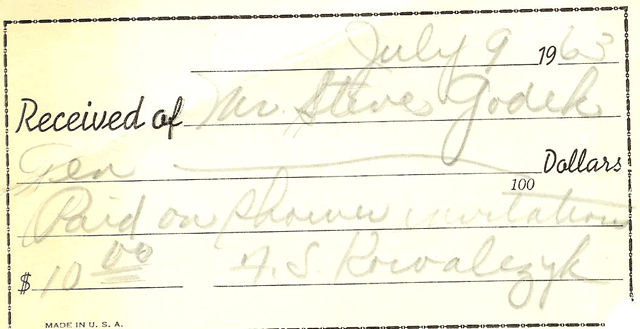 July 9 1963
Received of Mr. Steve Godek
Ten 100 Dollars
Paid on shower invitation
$ 10 00 A. S. Kowalczyk
MADE IN U. S. A.